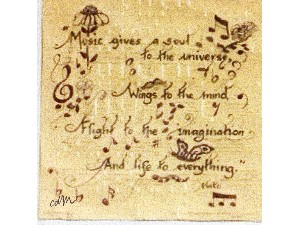 "Music gives a soul
to the universe
Wings to the mind
Flight to the imagination
And life to everything."
Plato
cdm